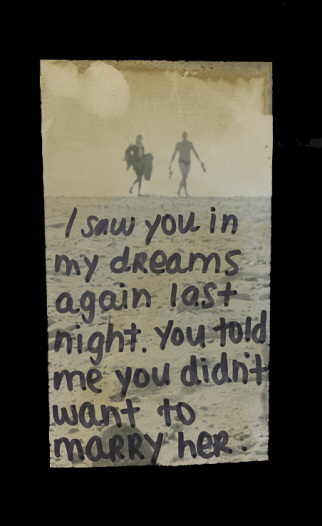 I saw you in
my dreams
again last
night. You told
me you didn't
want to
marry her.